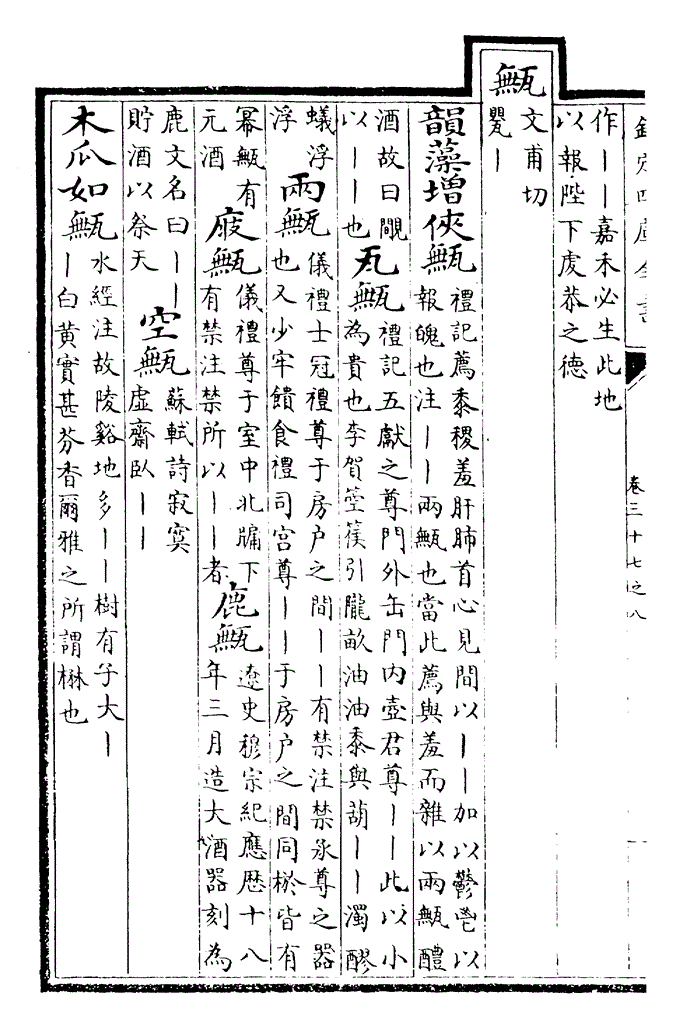 欽定四庫全書
卷三十七之八
作丨丨嘉禾必生此地
以報陛下虔恭之德
甒
文甫切
甖丨
韻藻增俠甒
禮記薦黍稷羞肝肺首心見間以丨丨加以鬱鬯以
報魄也注丨丨兩甒也當此薦與羞而雜以兩甒醴
酒故曰覵
以丨丨也
瓦甒
禮記五獻之尊門外缶門内壺君尊丨丨此以小
為貴也李賀箜篌引隴畝油油黍與葫丨丨濁醪
蟻浮
浮
兩甒
儀禮士冠禮尊于房户之間丨丨有禁注禁承尊之器
也又少牢饋食禮司宫尊丨丨于房户之間同棜皆有
冪甒有
元酒
庪甒
儀禮尊于室中北牖下
有禁注禁所以丨丨者
鹿甒
遼史穆宗紀應歴十八
年三月造大酒器刻為
鹿文名曰丨丨
貯酒以祭天
空甒
蘇軾詩寂寞
虛齋臥丨丨
木瓜如甒
水經注故陵谿地多丨丨樹有子大丨
丨白黄實甚芬香爾雅之所謂楙也